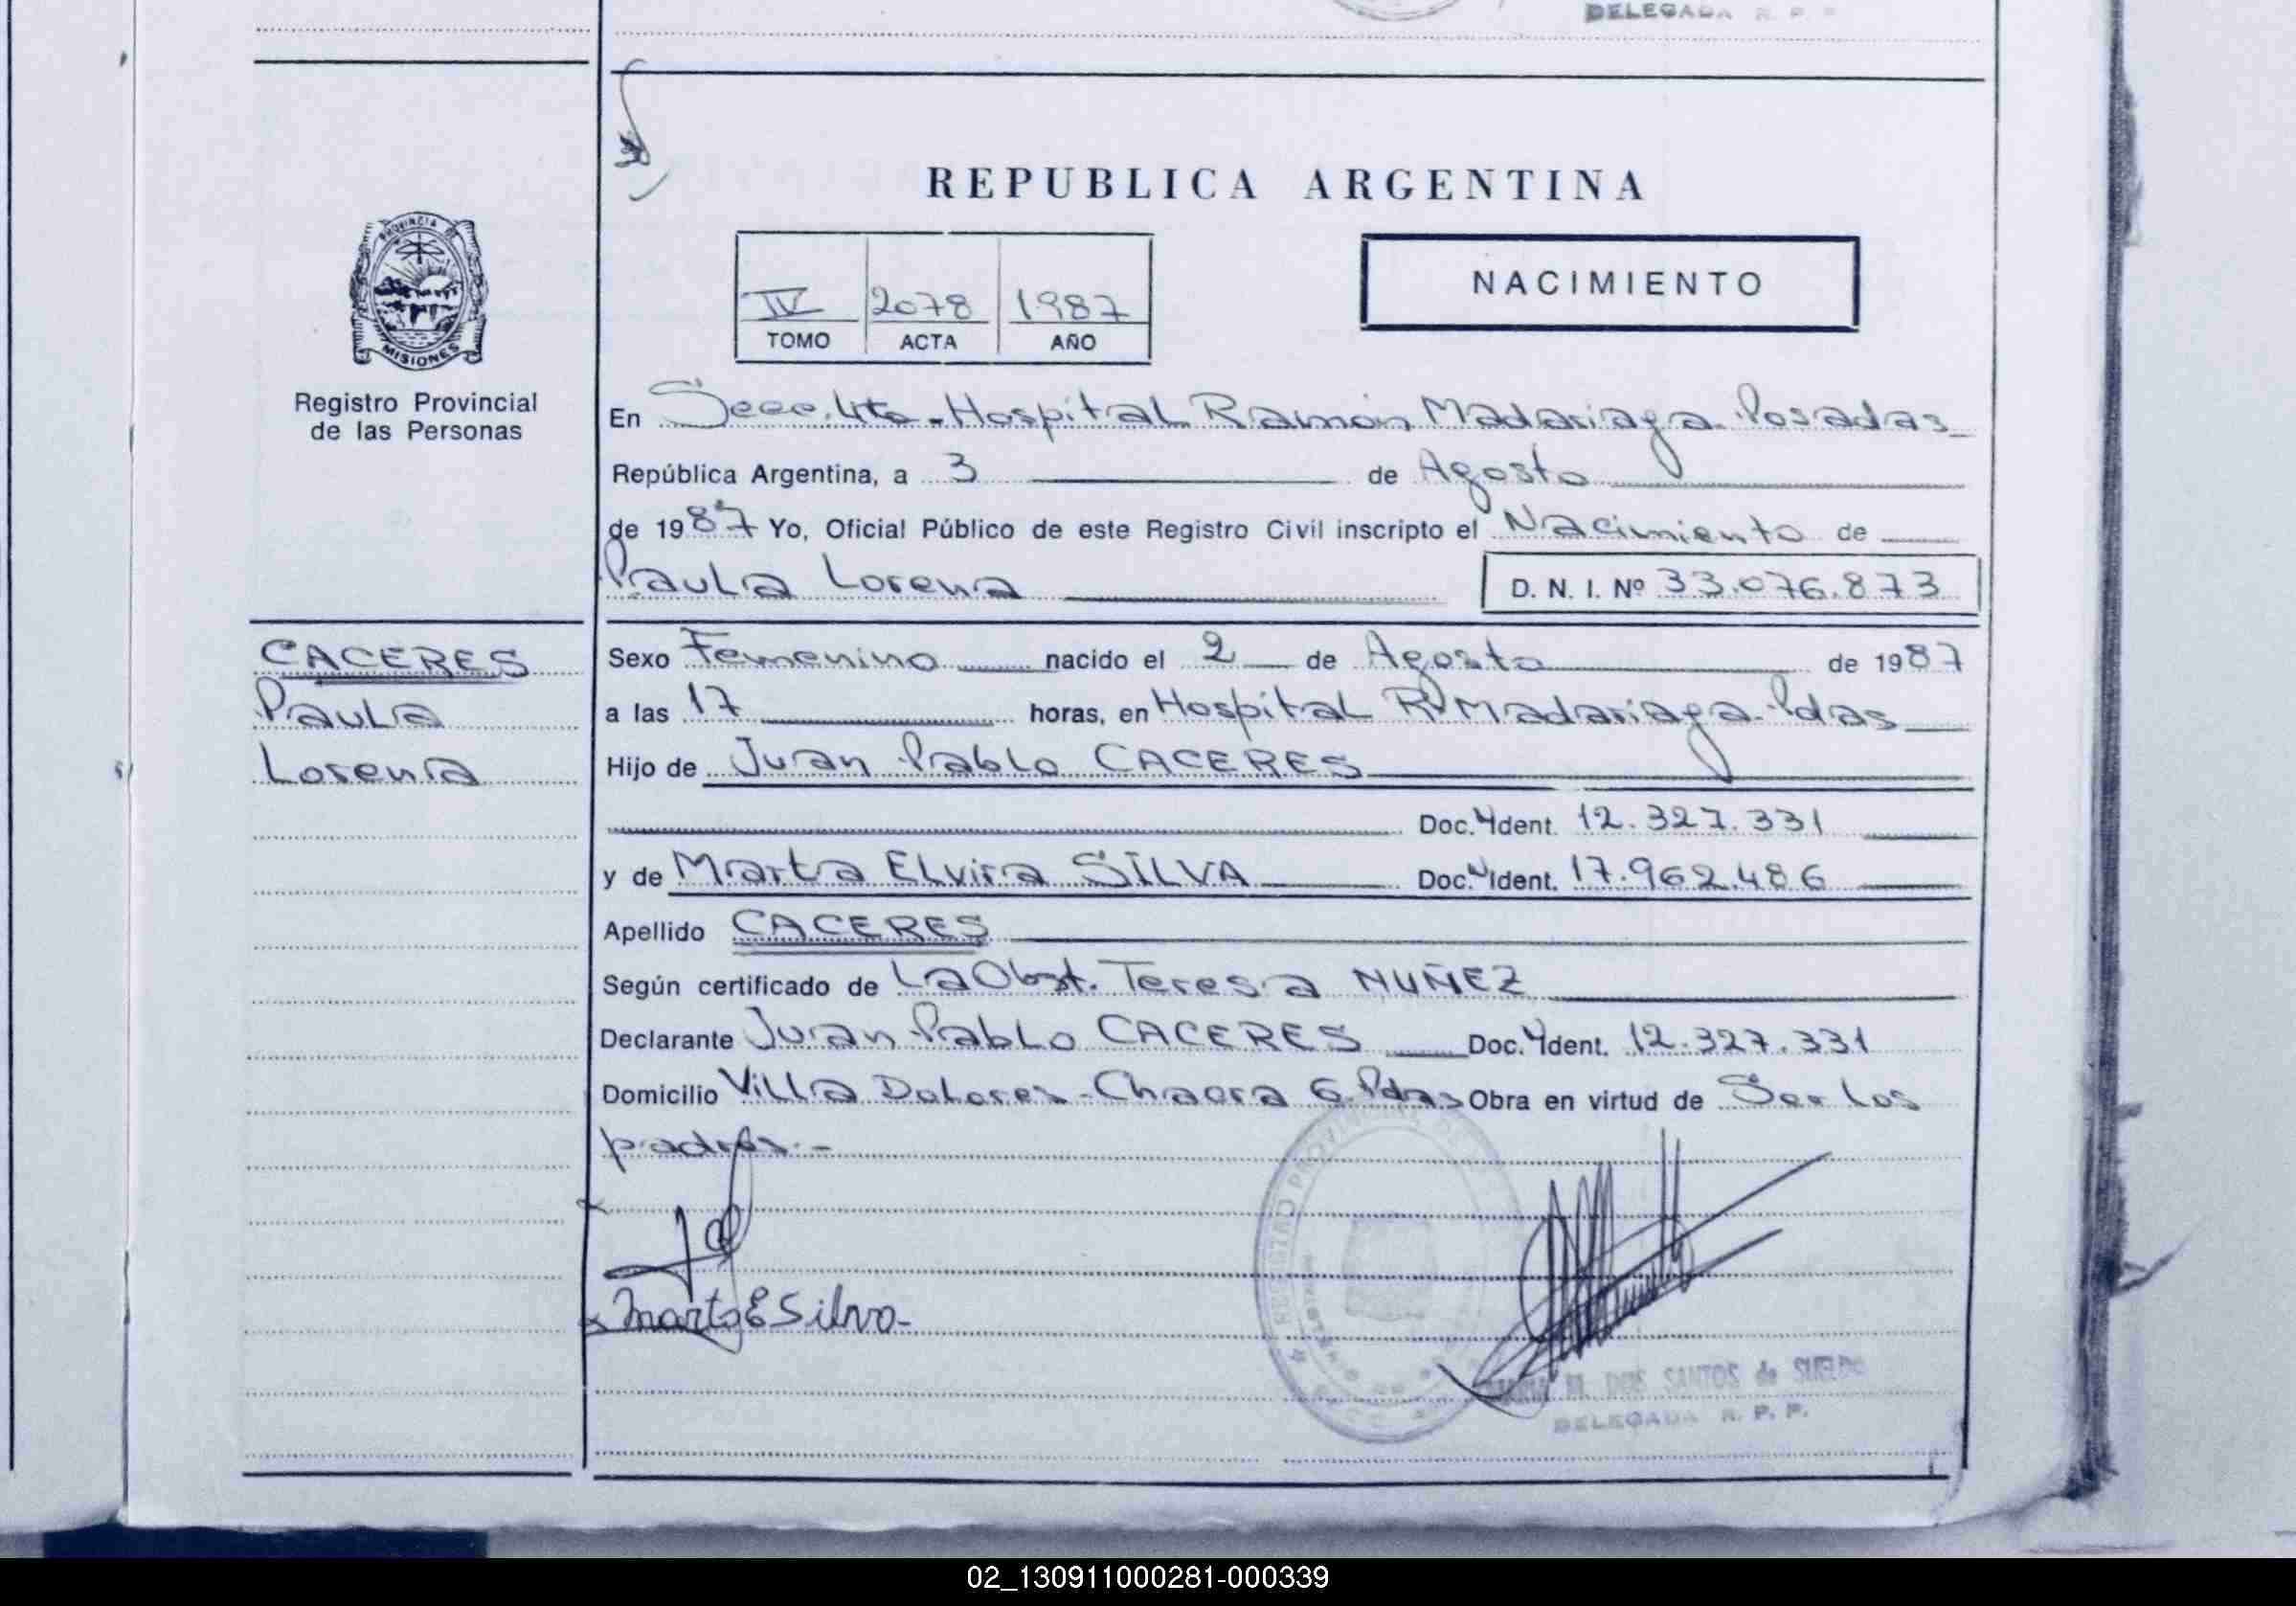 DELEGADA R. P. P.
REPUBLICA ARGENTINA
PROVINCIA DE
MISIONES
NACIMIENTO
IV 2078 1987
TOMO ACTA AÑO
Registro Provincial
de las Personas
En Secc. 4ta - Hospital Ramón Madariaga. Posadas
República Argentina, a 3 de Agosto
de 1987 Yo, Oficial Público de este Registro Civil inscripto el Nacimiento de
Paula Lorena D. N. I. Nº 33.076.873
CACERES
Paula
Lorena
Sexo Femenino nacido el 2 de Agosto de 1987
a las 17 horas, en Hospital R. Madariaga. Pdas
Hijo de Juan Pablo CACERES
Doc. Ident. 12.327.331
y de Marta Elvira SILVA Doc. Ident. 17.962.486
Apellido CACERES
Según certificado de La Obst. Teresa NUÑEZ
Declarante Juan Pablo CACERES Doc. Ident. 12.327.331
Domicilio Villa Dolores - Chacra 6. Pdas Obra en virtud de Ser los
padres.-
Marta E Silva-
REGISTRO PROVINCIAL DE
M. DOS SANTOS de SUELDO
DELEGADA R. P. P.
02_130911000281-000339